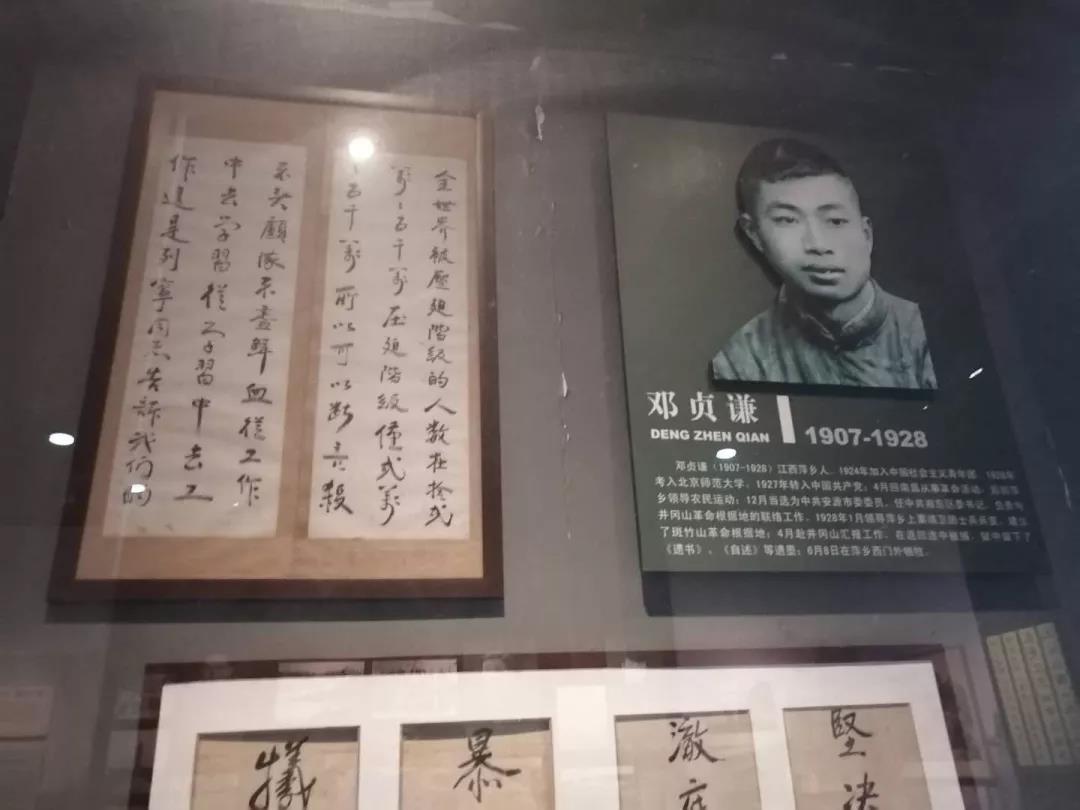 全世界被壓廹階級的人數在拾弍
萬〻五千萬压廹階級僅弍萬
〻五千萬所以可以断言殺
不盡鮮血從工作
中去学習從工作学習中去工
作這是列寧同志告訴我们的
邓贞谦
DENG ZHEN QIAN
1907-1928
邓贞谦（1907-1928）江西萍乡人。1924年加入中国社会主义青年团，1926年
考入北京师范大学，1927年转入中国共产党；4月回南昌从事革命活动，后到萍
乡领导农民运动；12月当选为中共安源市委委员，任中共湘东区委书记，负责与
井冈山革命根据地的联络工作。1928年1月领导萍乡上栗靖卫团士兵兵变，建立
了斑竹山革命根据地；4月赴井冈山汇报工作，在返回途中被捕，狱中留下了
《遗书》、《自述》等遗墨；6月8日在萍乡西门外牺牲。
堅决
澈底
暴
犧